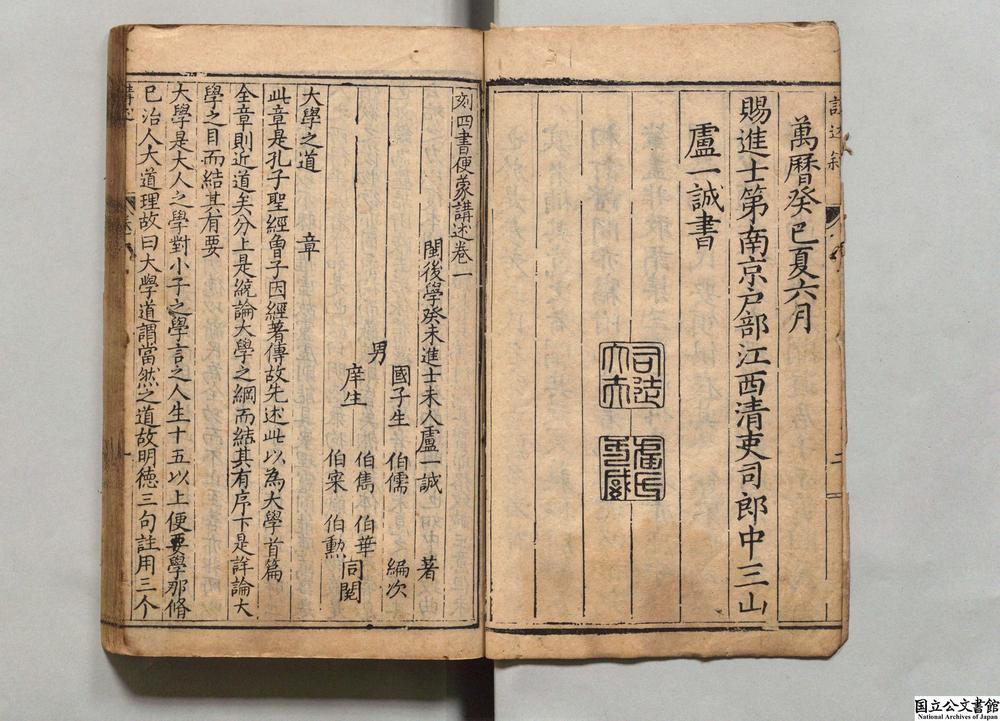 萬曆癸巳夏六月
賜進士第南京戶部江西清吏司郎中三山
盧一誠書
刻四書便蒙講述卷一
閩後學癸未進士未人盧一誠 著
國子生 伯儒 編次
男 伯雋 伯華 同閱
庠生 伯寀 伯勲
大學之道 章
此章是孔子聖經曾子因經著傳故先述此以為大學首篇
全章則近道矣分上是統論大學之綱而結其有序下是詳論大
學之目而結其有要
大學是大人之學對小子之學言之人生十五以上便要學那脩
已治人大道理故曰大學道謂當然之道故明德三句註用三个
国立公文書館
National Archives of Japan